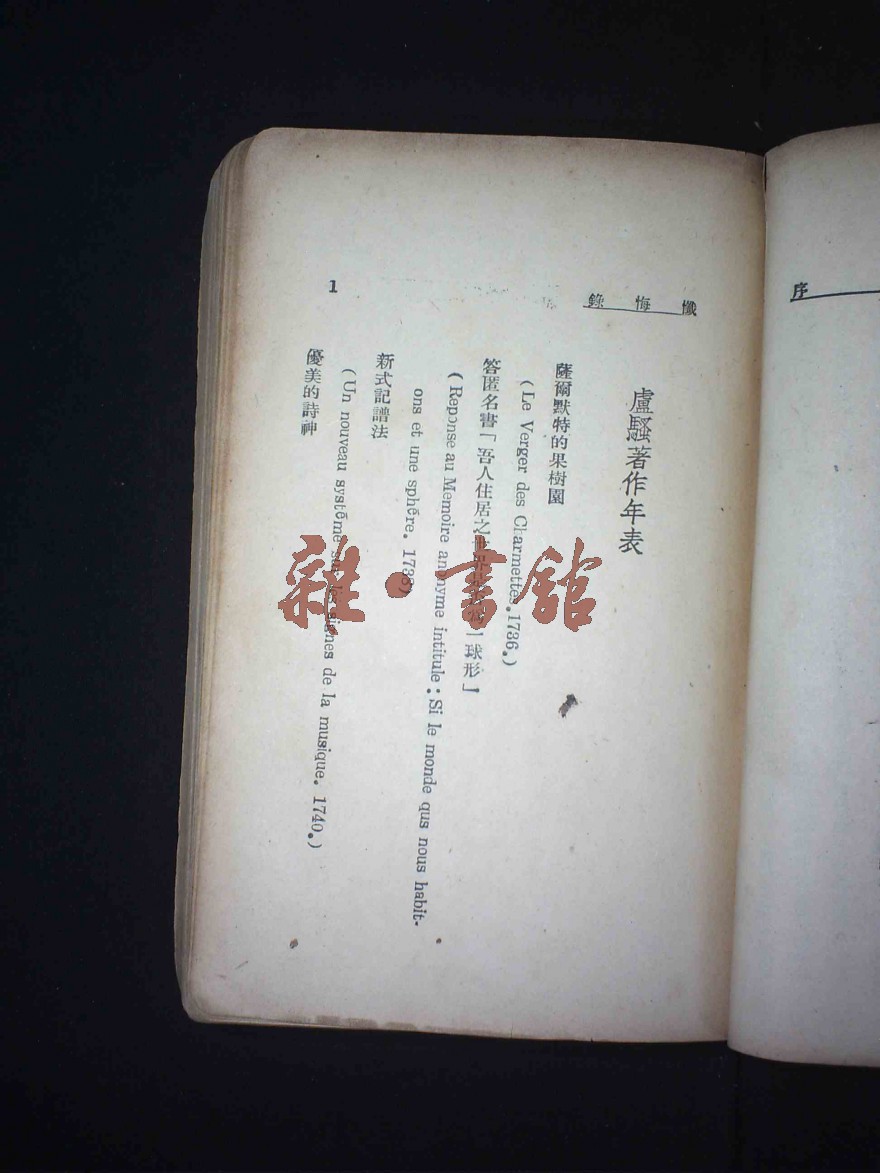 序
懺悔錄
1
盧騷著作年表
薩爾默特的果樹園
(Le Verger des Charmettes.1736.)
答匿名書「吾人住居之 球形」
(Reponse au Memoire anonyme intitule: Si le monde qus nous habit-
ons et une sphēre. 173
新式記譜法
(Un nouveau systēme sur les signes de la musique. 1740.)
優美的詩神
雜·書館